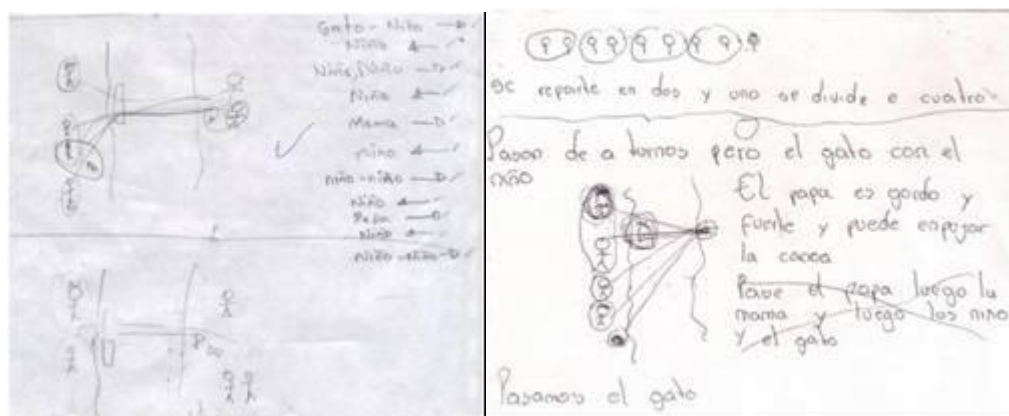 Gato - Niño → D ✓
Niño A ← ✓
Niña, Niño → D ✓
Niño A ← ✓
Mama → D ✓
niño A ← ✓
niño - niño → D ✓
Niño A ← ✓
Papa → D ✓
Niño A ← ✓
Niño - Niño - D ✓
se reparte en dos y uno se divide e cuatro
Pasan de a turnos pero el gato con el
niño
El papa es gordo y
fuerte y puede enpujar
la canoa
Pase el papa luego la
mama y luego los niño
y el gato
Pasamos el gato